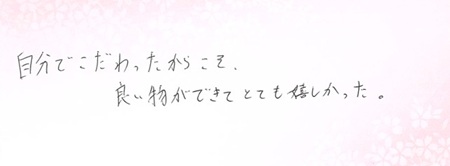 自分でこだわったからこそ、
良い物ができてとても嬉しかった。